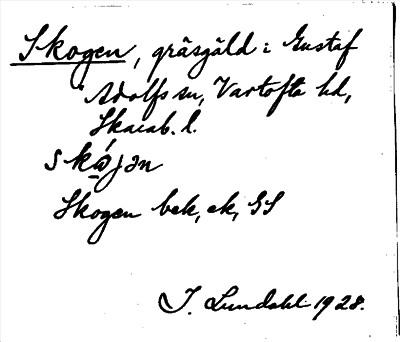 Skogen, gräsgäld i Gustaf
Adolfs sn, Vartofta hd,
Skarab. l.
skójən
Skogen bek, ek, GS
I. Lundahl 1928.